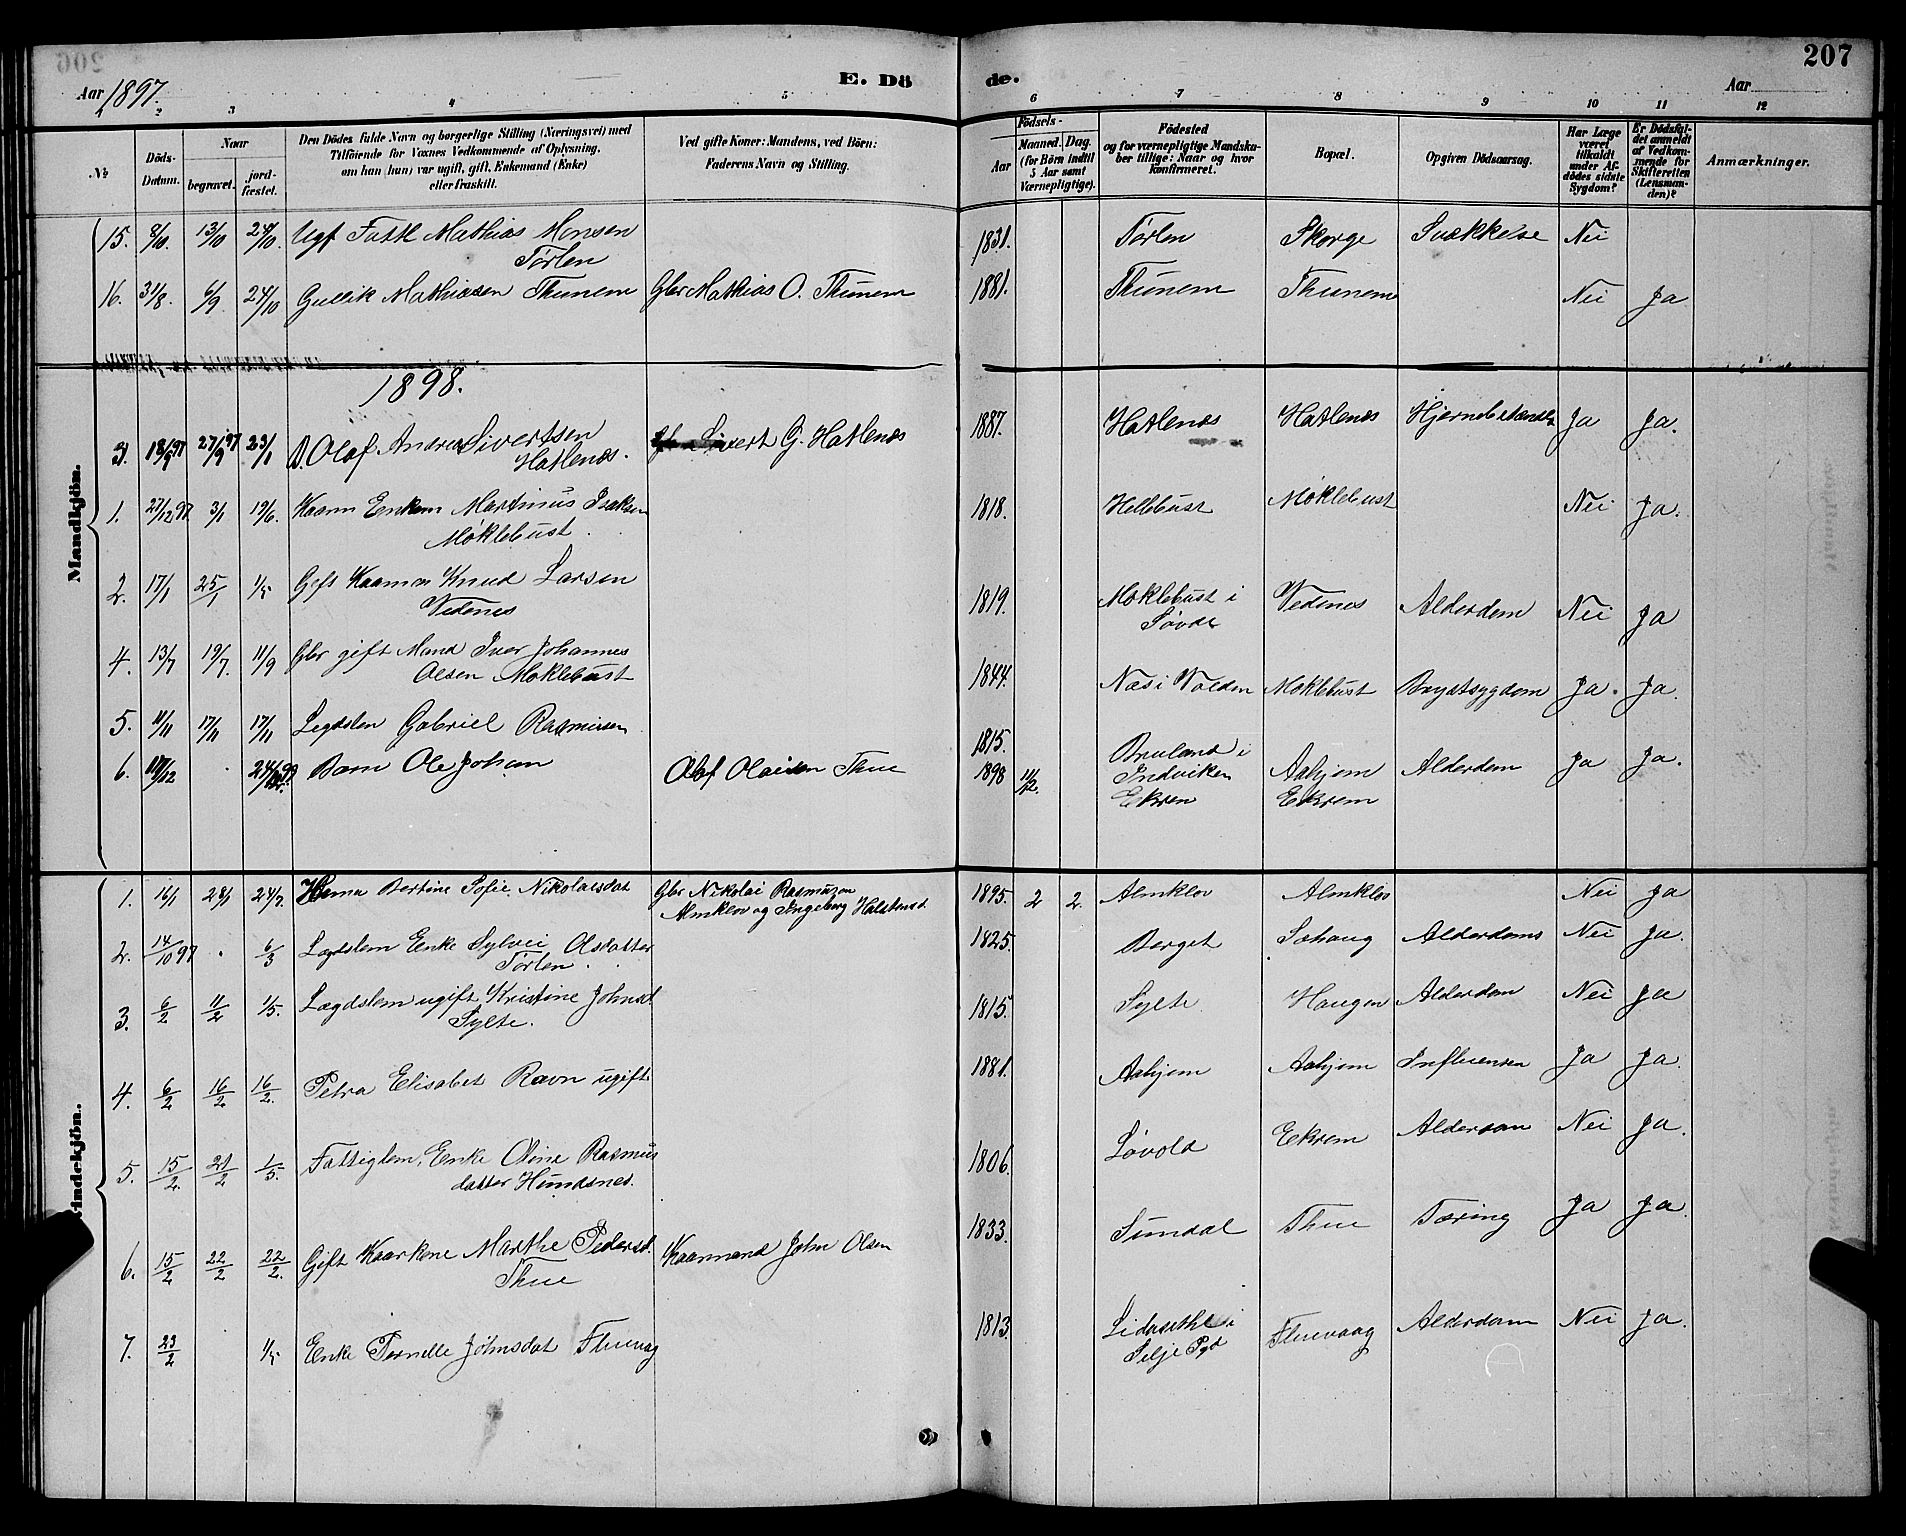 206
207
Aar 1897.
E. Dö
de.
Aar
1 2 3 4 5
6 7 8 9 10 11 12
№
Döds-
Datum.
Naar
begravet.
jord-
fæstet.
Den Dödes fulde Navn og borgerlige Stilling (Næringsvei) med
Tilföiende for Voxnes Vedkommende af Oplysning,
om han (hun) var ugift, gift, Enkemand (Enke)
eller fraskilt.
Ved gifte Koner: Mandens, ved Börn:
Faderens Navn og Stilling.
Födsels-
Aar
Maaned. Dag.
(for Börn indtil
5 Aar samt
Værnepligtige).
Födested
og for værnepligtige Mandska-
ber tillige: Naar og hvor
konfirmeret.
Bopæl.
Opgiven Dödsaarsag.
Har Læge
været
tilkaldt
under Af-
dödes sidste
Sygdom?
Er Dödsfal-
det anmeldt
af Vedkom-
mende for
Skifteretten
(Lensman-
den)?
Anmærkninger.
Mandkjön.
15. 8/10. 13/10 24/10. Ugf Fattl Mathias Monsen 1831. Tørlen Skorge Svækkelse Nei
Tørlen
16. 31/8. 6/9 24/10 Gullik Mathiasen Thunem Gbr Mathias O. Thunem 1881. Thunem Thunem Nei Ja
1898.
3. 18/9 97 27/9 97 23/1 Olaf Andreas Sivertsen Sivert G. Hatlenes 1887. Hatlenes Hatlenes Hjernebetændels Ja Ja.
Hatlenes.
1. 27/12 97 3/1 19/6. Kaarm Enkem Martinus Isaksen 1818. Hellebust Møklebust Nei Ja.
Møklebust.
2. 17/1 25/1 1/5 Gift Kaarman Knud Larsen 1819. Møklebust i Vedenes Alderdom Nei Ja
Vedenes Søvde
4. 13/7 19/7. 11/9 Gbr gift Mand Iver Johannes
Olsen Møklebust 1844. Næs i Volden Møklebust Brystsygdom Ja. Ja.
5. 11/11 17/11 17/11 Legdslem Gabriel Rasmussen 1815. Bruland i
Indviken Aahjem Alderdom Ja Ja.
6. 24/4 99 Barn Ole Johan Olaf Olaisen Thue 1898 11/12. Ekrem Ekrem
Kvindekjön.
1. 16/1 28/1 24/7. Bertine Sofie Nikolaisdat Gbr Nikolai Rasmusen 1895. 2 2. Almklov Almklov Nei Ja
Almklov og Ingeborg Halstensd
2. 14/10 97 . 6/3 Legdslem Enke Sylvei Olsdatter 1825. Berget Sæhaug Alderdoms Nei Ja.
Tørlen.
3. 6/2 11/2 1/5. Lægdslem ugift Kristine Johnsd. 1815. Sylte Haugen Alderdom Nei Ja
Sylte.
4. 6/2 16/2 16/2. Petra Elisabet Ravn ugift 1881. Aahjem Aahjem Influensa Ja Ja.
5. 15/2. 21/2 1/5. Fattiglem, Enke Oline Rasmus 1806. Løvold Ekrem Alderdom Nei Ja.
datter Hundsnes.
6. 15/2 22/2 22/2. Gift Kaarkone Marthe Pedersd. Kaarmand John Olsen 1833. Sundal Thue Tæring Ja Ja.
Thue
7. 23/2 . 1/5 Enke Pernelle Johnsdat Fluevag 1813. i Fluevaag Alderdom Nei Ja.
Selje Pgd